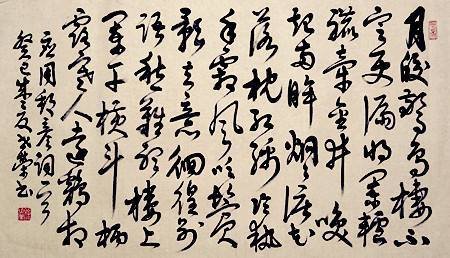 月皎驚烏棲不
定更漏将闌轤
轆牽金井喚
起兩眸炯々淚花
落枕紅綿冷執
手霜風吹鬢
影去意徊徨別
語愁難聽樓上
闌干橫斗柄
露寒人遠鷄相
應周邦彥詞一首
癸巳